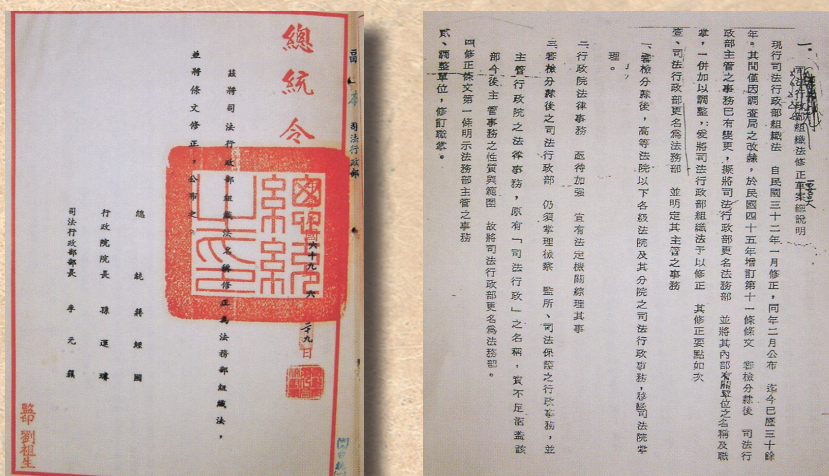 總統令
司法行政部
中華民國六十九年六月二十九日
茲將司法行政部組織法名稱修正為法務部組織法，
並將條文修正，公布之。
總統蔣經國
行政院院長　孫運璿
司法行政部部長　李元簇
監印 劉祖生
一、司法行政部組織法修正草案總說明
現行司法行政部組織法　自民國三十二年一月修正，同年二月公布　迄今已歷三十餘
年。其間僅因調查局之改隸，於民國四十五年增訂第十一條條文　審檢分隸後　司法行
政部主管之事務已有變更，擬將司法行政部更名法務部　並將其內部有關單位之名稱及職
掌，一併加以調整，爰將司法行政部組織法予以修正　其修正要點如次
壹、司法行政部更名為法務部　並明定其主管之事務
一、審檢分隸後，高等法院以下各級法院及其分院之司法行政事務，移歸司法院掌
理。
二、行政院法律事務　亟待加強　宜有法定機關綜理其事
三、審檢分隸後之司法行政部　仍須掌理檢察　監所、司法保護之行政事務，並
主管行政院之法律事務，原有「司法行政」之名稱，實不足涵蓋該
部今後主管事務之性質與範圍　故將司法行政部更名為法務部。
四、修正條文第一條明示法務部主管之事務
貳、調整單位，修訂職掌。